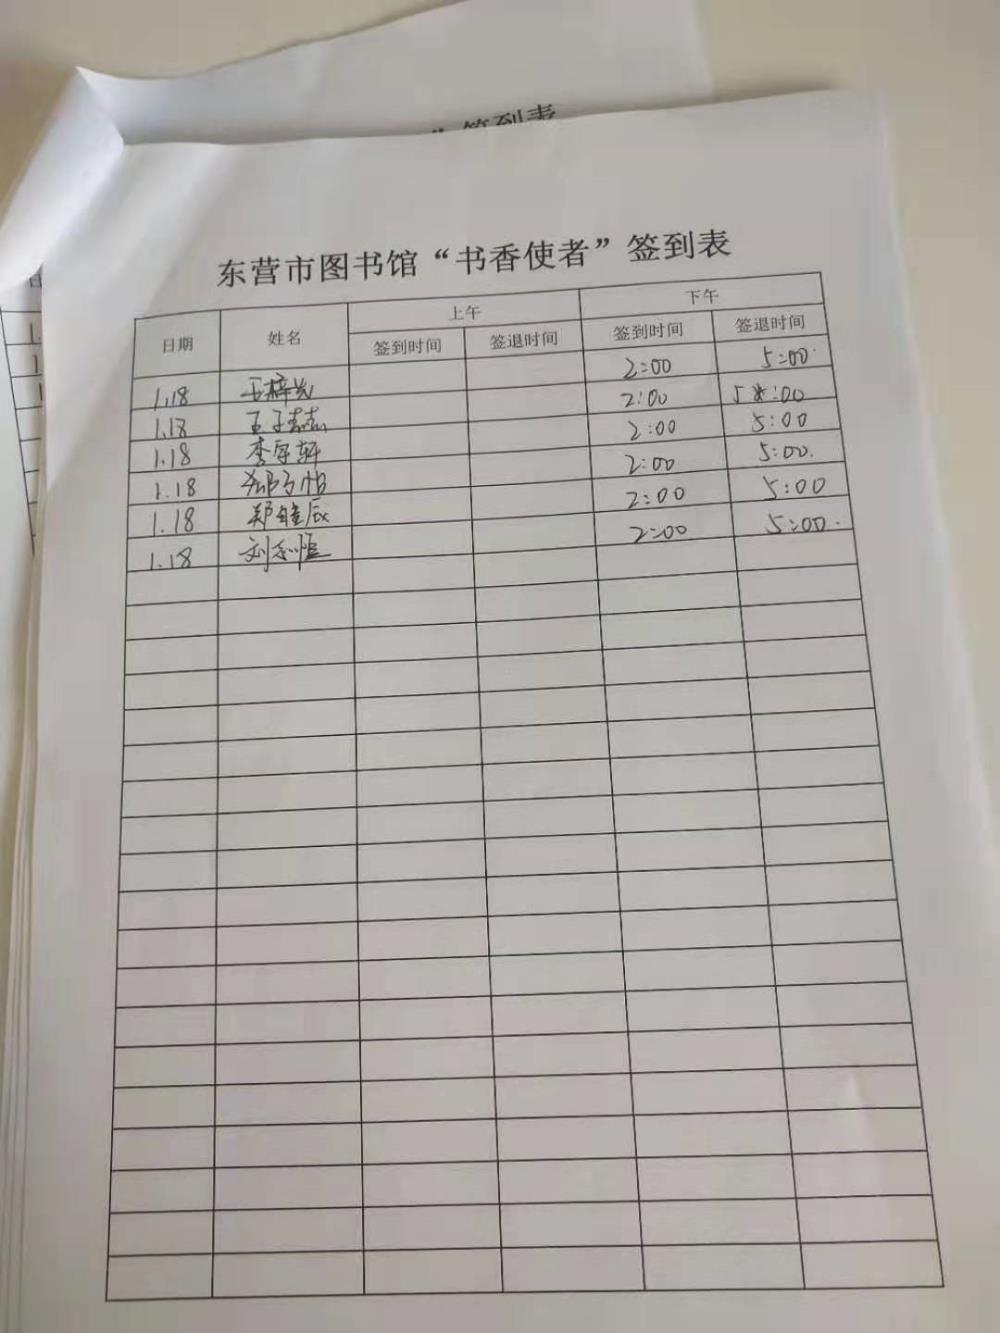 签到表
东营市图书馆“书香使者”签到表
日期 姓名 上午 下午
签到时间 签退时间 签到时间 签退时间
1.18 王梓 2:00 5:00
1.18 王子 2:00 5:00
1.18 李宇轩 2:00 5:00
1.18 2:00 5:00.
1.18 郑 辰 2:00 5:00
1.18 刘 恒 2:00 5:00.